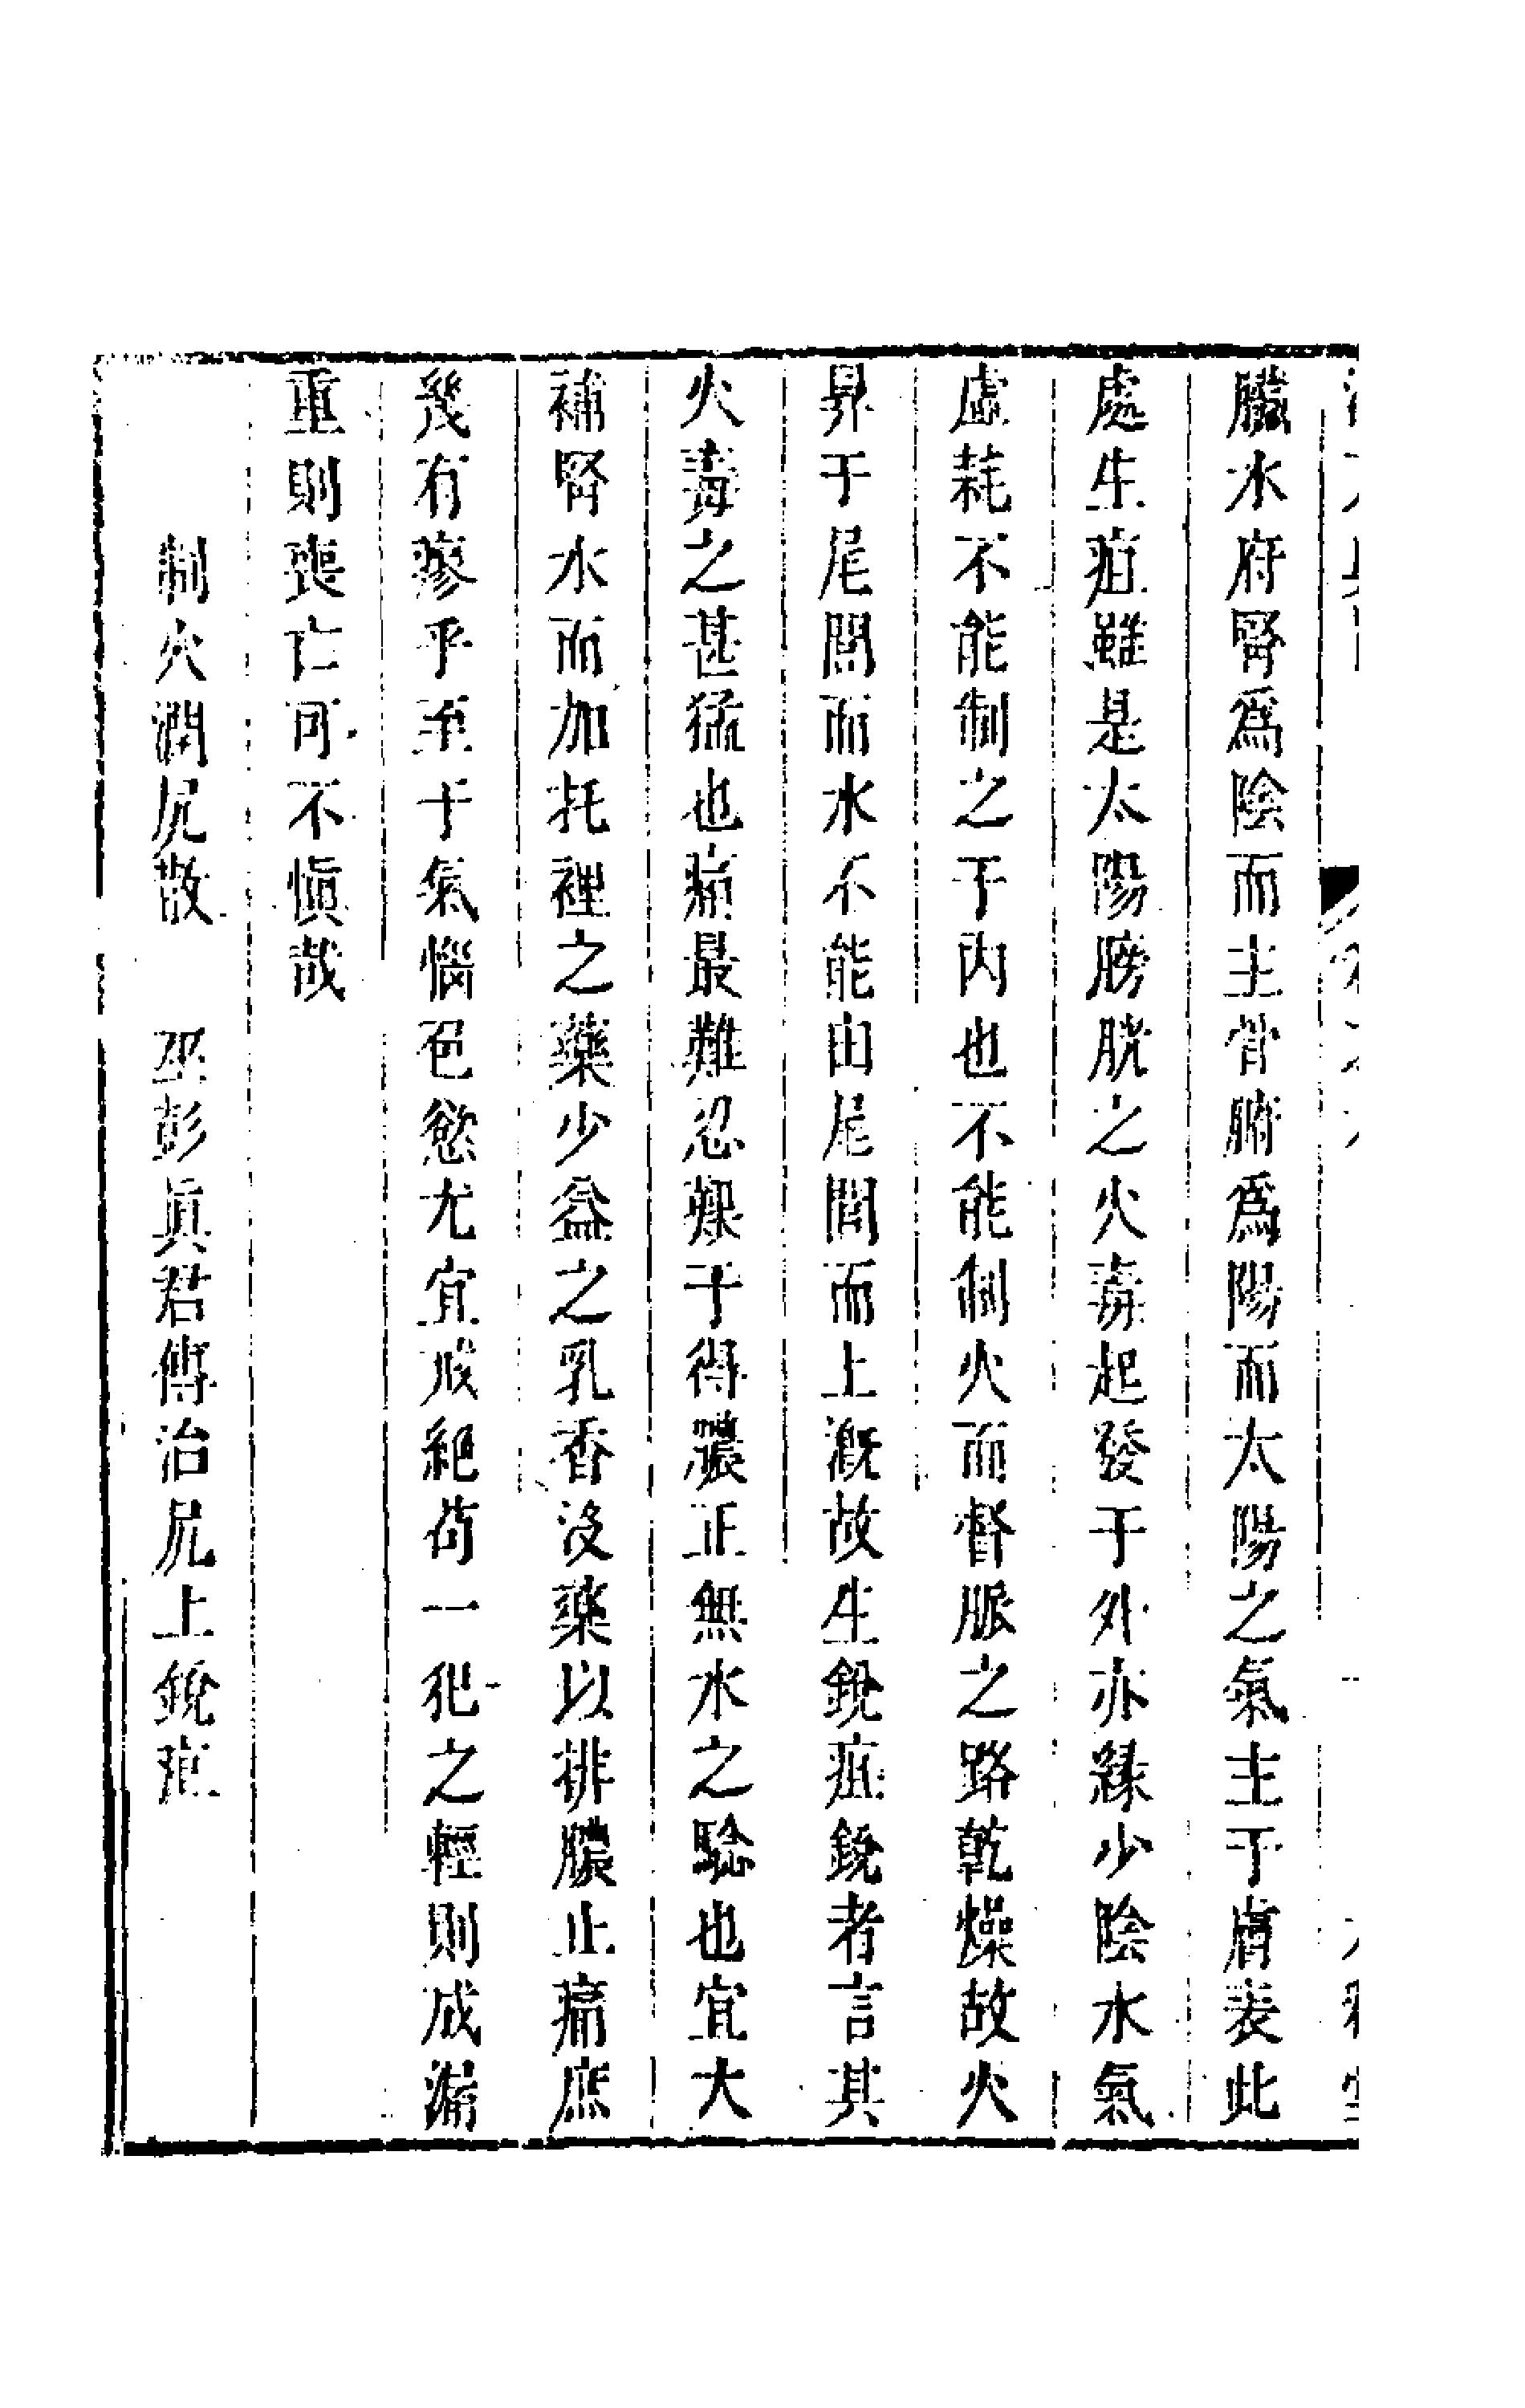 臟水府腎爲陰而主骨腑爲陽而太陽之氣主于膚表此
處生疽雖是太陽膀胱之火毒起發于外亦緣少陰水氣
虛耗不能制之于內也不能制火而督脈之路乾燥故火
昇于尾閭而水不能由尾閭而上漑故生銳疽銳者言其
火毒之甚猛也痛最難忍難于得膿正無水之騐也宜大
補腎水而加托裡之藥少益之乳香沒藥以排膿止痛庶
幾有瘳乎至于氣惱色慾尤宜戒絕苟一犯之輕則成漏
重則喪亡可不愼哉
制火潤尻散　巫彭眞君傳治尻上銳疽